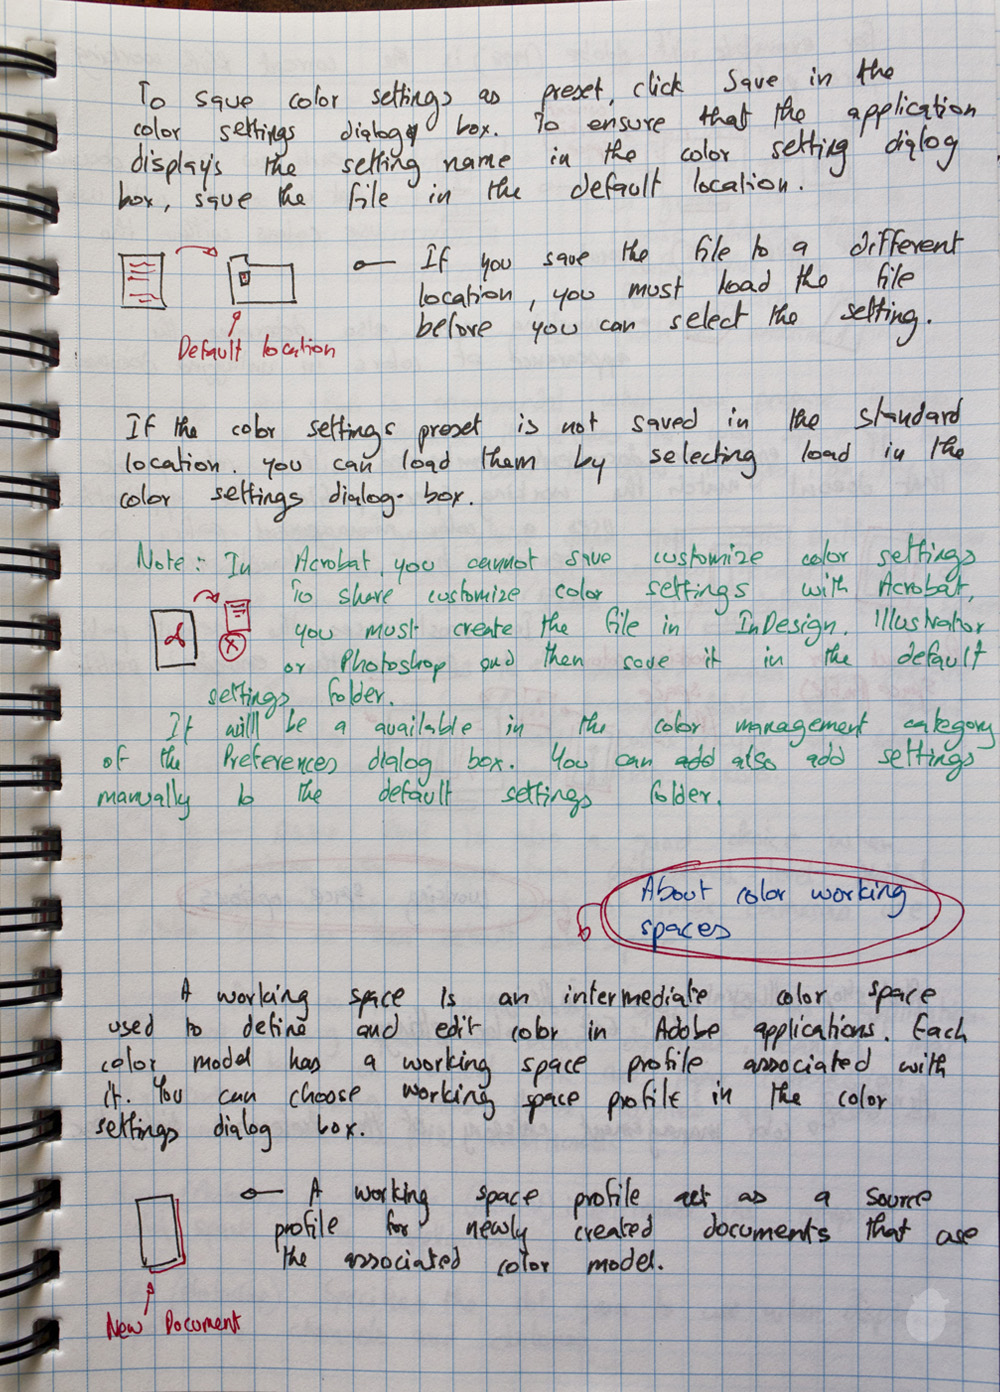 To save color settings as preset, click Save in the
color settings dialog box. To ensure that the application
displays the setting name in the color setting dialog
box, save the file in the default location.
If you save the file to a different
location, you must load the file
before you can select the setting.
Default location
If the color settings preset is not saved in the standard
location. you can load them by selecting load in the
color settings dialog-box.
Note: In Acrobat, you cannot save customize color settings
To share customize color settings with Acrobat,
you must create the file in InDesign, Illustrator
or Photoshop and then save it in the default
settings folder.
It will be a available in the color management category
of the Preferences dialog box. You can add also add settings
manually to the default settings folder.
About color working
spaces
A working space is an intermediate color space
used to define and edit color in Adobe applications. Each
color model has a working space profile associated with
it. You can choose working space profile in the color
settings dialog box.
A working space profile act as a source
profile for newly created documents that use
the associated color model.
New Document